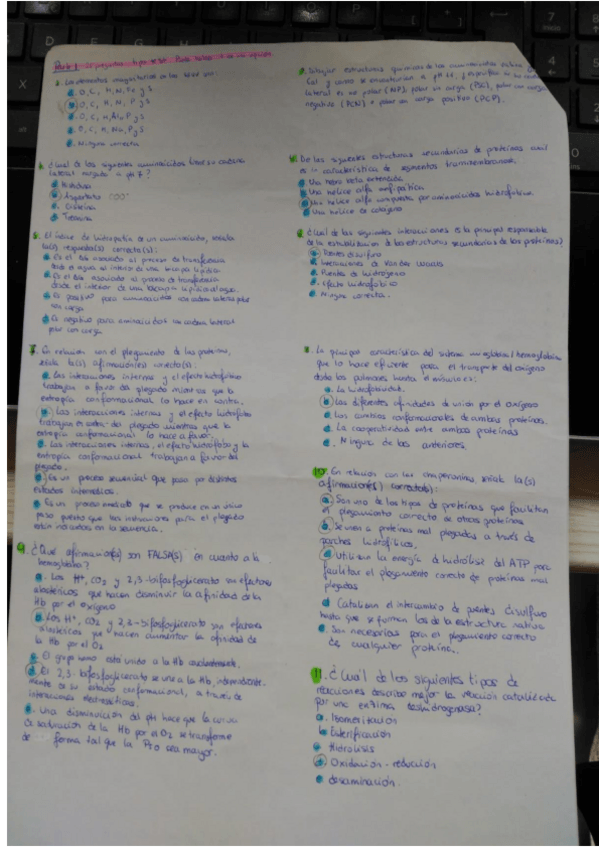 Parte 1. preguntas tipo test. Puede haber + de una opción
1. Los elementos mayoritarios en los seres vivos son:
a. O, C, H, N, Fe y S
b. O, C, H, N, P y S
c. O, C, H, Al, P y S
d. O, C, H, Na, P y S
e. Ninguna correcta
3. ¿Cual de los siguientes aminoácidos tiene su cadena
lateral cargada a pH 7?
a. Histidina
b. Aspartato COO⁻
c. Cisteína
d. Treonina
5. El índice de hidropatía de un aminoácido, señala
la(s) respuesta(s) correcta(s):
a. Es el asociado al proceso de transferencia
desde el agua al interior de una bicapa lipídica.
b. Es el asociado al proceso de transferencia
desde el interior de una bicapa lipídica al agua.
c. Es positivo para aminoácidos con cadena lateral polar
con carga
d. Es negativo para aminoácidos con cadena lateral
polar con carga
7. En relación con el plegamiento de las proteínas,
señala la(s) afirmación(es) correcta(s):
a. Las interacciones internas y el efecto hidrofóbico
trabajan a favor del plegado mientras que la
entropía conformacional lo hace en contra.
b. Las interacciones internas y el efecto hidrófobo
trabajan en contra del plegado mientras que la
entropía conformacional lo hace a favor.
c. Las interacciones internas, el efecto hidrófobo y la
entropía conformacional trabajan a favor del
plegado.
d. Es un proceso secuencial que pasa por distintos
estados intermedios.
e. Es un proceso inmediato que se produce en un único
paso puesto que las instrucciones para el plegado
están indicadas en la secuencia.
9. ¿Qué afirmación(es) son FALSA(S) en cuanto a la
hemoglobina?
a. Los H⁺, CO₂ y 2,3-bifosfoglicerato son efectores
alostéricos que hacen disminuir la afinidad de la
Hb por el oxígeno
b. Los H⁺, CO₂ y 2,3-bifosfoglicerato son efectores
alostéricos que hacen aumentar la afinidad de
la Hb por el O₂
c. El grupo hemo está unido a la Hb covalentemente.
d. El 2,3-bifosfoglicerato se une a la Hb, independiente-
mente de su estado conformacional, a través de
interacciones electrostáticas.
e. Una disminución del pH hace que la curva
de saturación de la Hb por el O₂ se transforme
de forma tal que la P50 sea mayor.
2. estructuras químicas de los aminoácidos
Cal y como se encontrarían a pH especifica si su cadena
lateral es no polar (NP), polar sin carga (PSC), polar con carga
negativa (PCN) o polar con carga positiva (PCP).
4. De las siguientes estructuras secundarias de proteínas cuál
es la característica de segmentos transmembranosos.
a. Una hebra beta extendida
b. Una hélice alfa anfipática
c. Una hélice alfa compuesta por aminoácidos hidrofóbicos
d. Una hélice de colágeno
6. ¿Cual de las siguientes interacciones es la principal responsable
de la estabilización de las estructuras secundarias de las proteínas?
a. Puentes disulfuro
b. Interacciones de Van der Waals
c. Puentes de hidrógeno
d. Efecto hidrofóbico
e. Ninguna correcta.
8. La principal característica del sistema mioglobina/hemoglobina
que lo hace eficiente para el transporte del oxígeno
desde los pulmones hasta el músculo es:
a. La hidrofobicidad.
b. Las diferentes afinidades de unión por el oxígeno
c. Los cambios conformacionales de ambas proteínas.
d. La cooperatividad entre ambas proteínas
e. Ninguna de las anteriores.
10. En relación con las chaperoninas señale la(s)
afirmacion(es) correcta(s):
a. Son uno de los tipos de proteínas que facilitan
el plegamiento correcto de otras proteínas
b. Se unen a proteínas mal plegadas a través de
parches hidrofílicos.
c. Utilizan la energía de hidrólisis del ATP para
facilitar el plegamiento correcto de proteínas mal
plegadas
d. Catalizan el intercambio de puentes disulfuro
hasta que se forman los de la estructura nativa
e. Son necesarias para el plegamiento correcto
de cualquier proteína.
11. ¿Cuál de los siguientes tipos de
reacciones describe mejor la reacción catalizada
por una enzima deshidrogenasa?
a. Isomerización
b. Esterificación
c. Hidrólisis
d. Oxidación-reducción
e. desaminación.